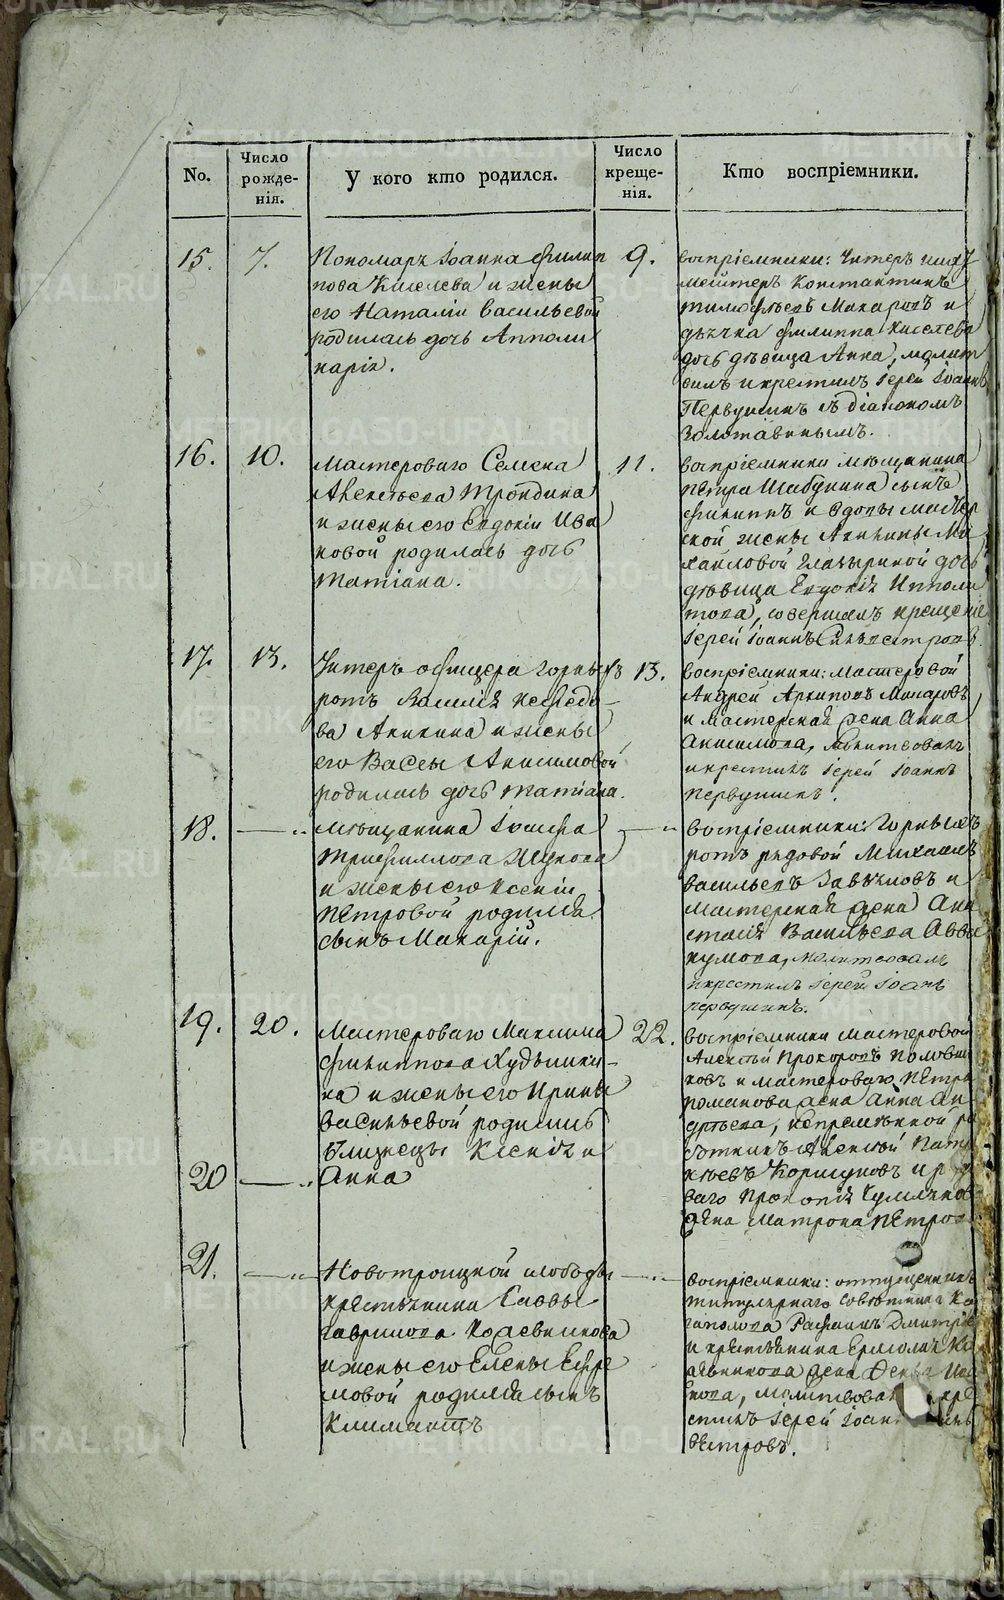 No.
Число рожде-
нія.
У кого кто родился.
Число креще-
нія.
Кто воспріемники.
15.
7.
Пономаря Іоанна Филип
пова Киселева и жены
его Наталіи Васильевой
родилась дочь Апполи
нарія.
9.
воспріемники: Унтеръ
мейстеръ Константинъ
Тимофеевъ Макаровъ и
дьячка Филиппа Киселева
дочь дѣвица Анна, молит
вилъ и крестилъ Іерей Іоаннъ
Первушинъ съ Діакономъ
Золотавинымъ.
16.
10.
Мастероваго Семена
Алексѣева Трондина
и жены его Евдокіи Ива
новой родилась дочь
Татіана.
11.
воспріемники мѣщанина
Петра Шабунина сынъ
Филиппъ и вдовы мастер
ской жены Акилины Ми
хайловой дочь
дѣвица Евдокія Ипполи
това, совершалъ крещеніе
Іерей Іоаннъ Сильвестровъ
17.
13.
Унтеръ офицера Горныхъ
ротъ Василія Нефедо-
ва Аникина и жены
его Вассы Анисимовой
родилась дочь Татіана.
13.
воспріемники: мастеровой
Андрей Архиповъ Макаровъ
и мастерская жена Анна
Анисимова, молитвовалъ
и крестилъ Іерей Іоаннъ
Первушинъ.
18.
мѣщанина Іосифа
Трифиллова Жукова
и жены его Ксеніи
Петровой родился
сынъ Макарій.
воспріемники: Горныхъ
ротъ рядовой Михаилъ
Васильевъ Завьяловъ и
мастерская жена Ана
стасія Васильева Авва
кумова, молитвовалъ
и крестилъ Іерей Іоаннъ
Первушинъ.
19.
20.
Мастероваго Максима
Филиппова Худышки-
на и жены его Ирины
Васильевой родились
близнецы Ксенія и
22.
воспріемники мастеровой
Алексѣй Прохоровъ Половин
ковъ и мастероваго Петра
Романова жена Анна Ан
дреева, непремѣнной ра
ботникъ Алексѣй Пат
кѣевъ Коршуновъ и
ваго Прокопія
жена Матрона Петрова
20
Анна
21.
Новотроицкой слободы
крестьянина Саввы
Гаврилова Кожевникова
и жены его Елены Ефре
мовой родился сынъ
Климантъ
воспріемники: отпущенникъ
титулярнаго совѣтника Ка
гаполова Рафаилъ Дмитріе
и крестьянина Ермолая Ко
жевникова жена Фекла
, молитвовалъ и кре
стилъ Іерей Іоаннъ Силь
вестровъ.
METRIKI.GASO-URAL.RU